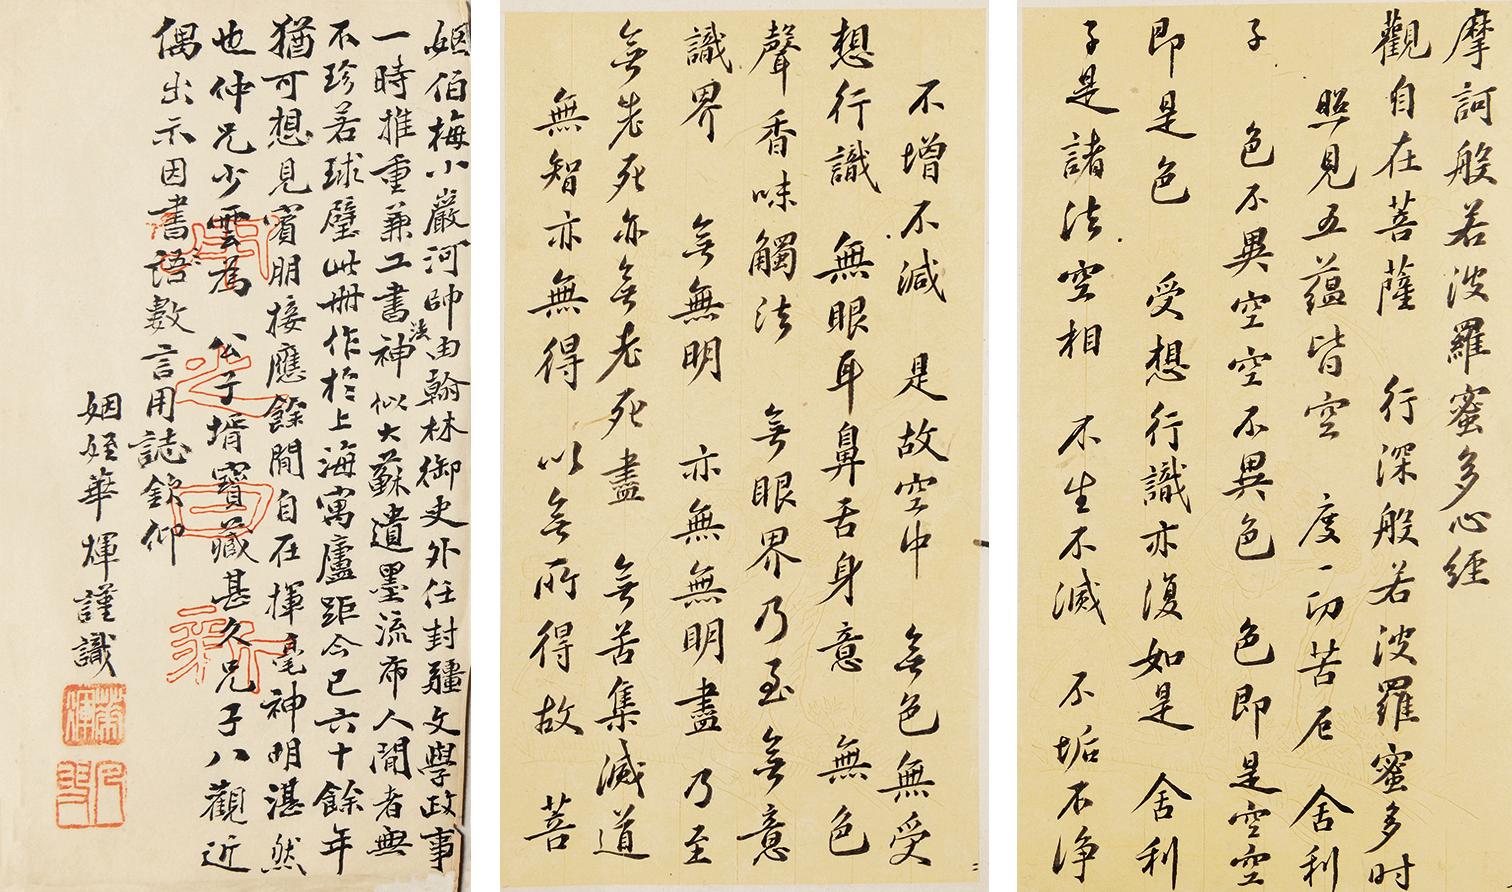 摩訶般若波羅蜜多心經
觀自在菩薩 行深般若波羅蜜多时
照見五蘊皆空 度一切苦厄 舍利
子 色不異空空不異色 色即是空空
即是色 受想行識亦復如是 舍利
子是諸法空相 不生不滅 不垢不淨
不增不減 是故空中 無色無受
想行識 無眼耳鼻舌身意 無色
聲香味觸法 無眼界乃至無意
識界 無無明 亦無無明盡 乃至
無老死亦無老死盡 無苦集滅道
無智亦無得 以無所得故 菩
姻伯梅小巖河帥由翰林御史外任封疆文學政事
一時推重兼工書法神似大蘇遺墨流布人間者無
不珍若球璧此冊作於上海寓廬距今已六十餘年
猶可想見賓朋接應餘閒自在揮毫神明湛然
也仲兄少雲為 公子壻寶藏甚久兄子八觀近
偶出示因書語數言用誌欽仰
姻姪華輝謹識